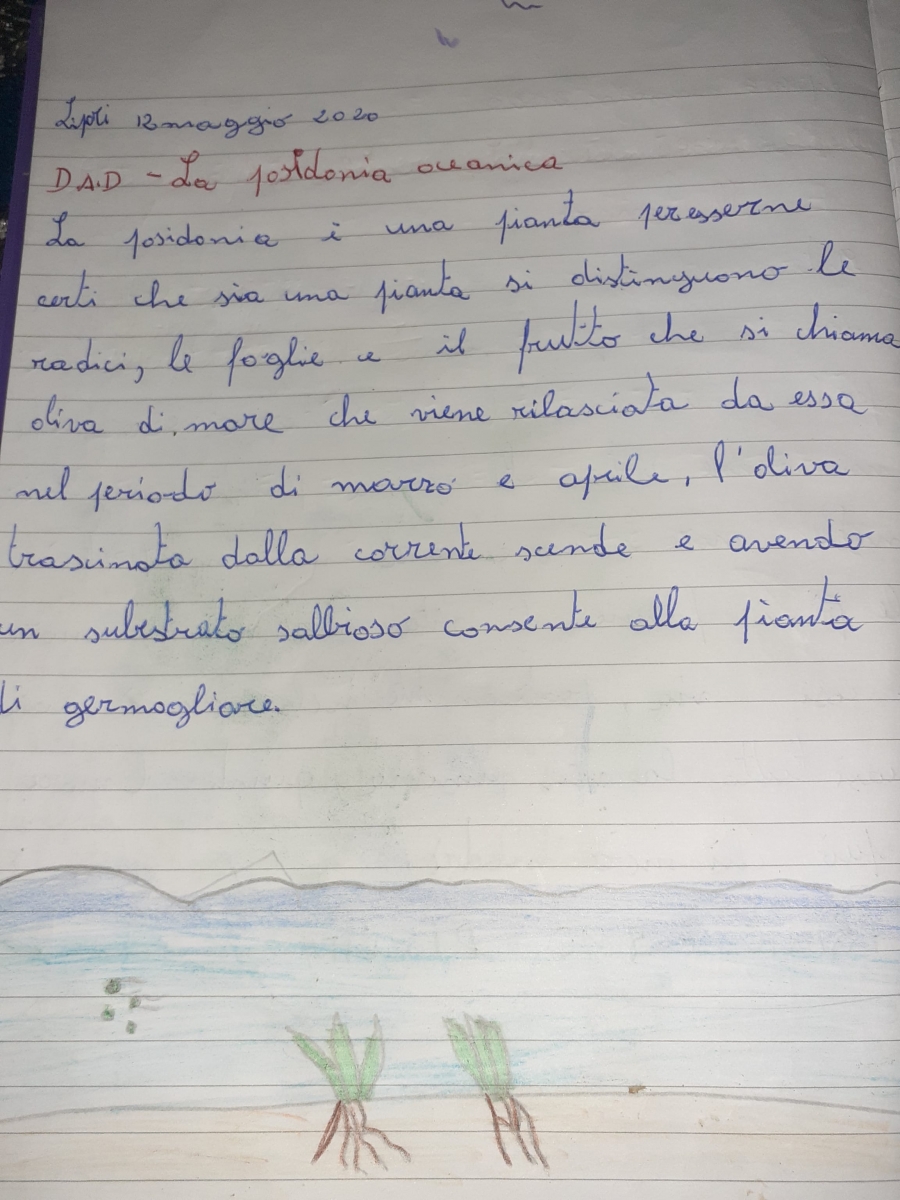 Lipari 12 maggio 2020
D.A.D - La posidonia oceanica
La posidonia è una pianta peresserne
certi che sia una pianta si distinguono le
radici, le foglie e il frutto che si chiama
oliva di mare che viene rilasciata da essa
nel periodo di marzo e aprile, l'oliva
trascinata dalla corrente scende e avendo
un substrato sabbioso consente alla pianta
di germogliare.